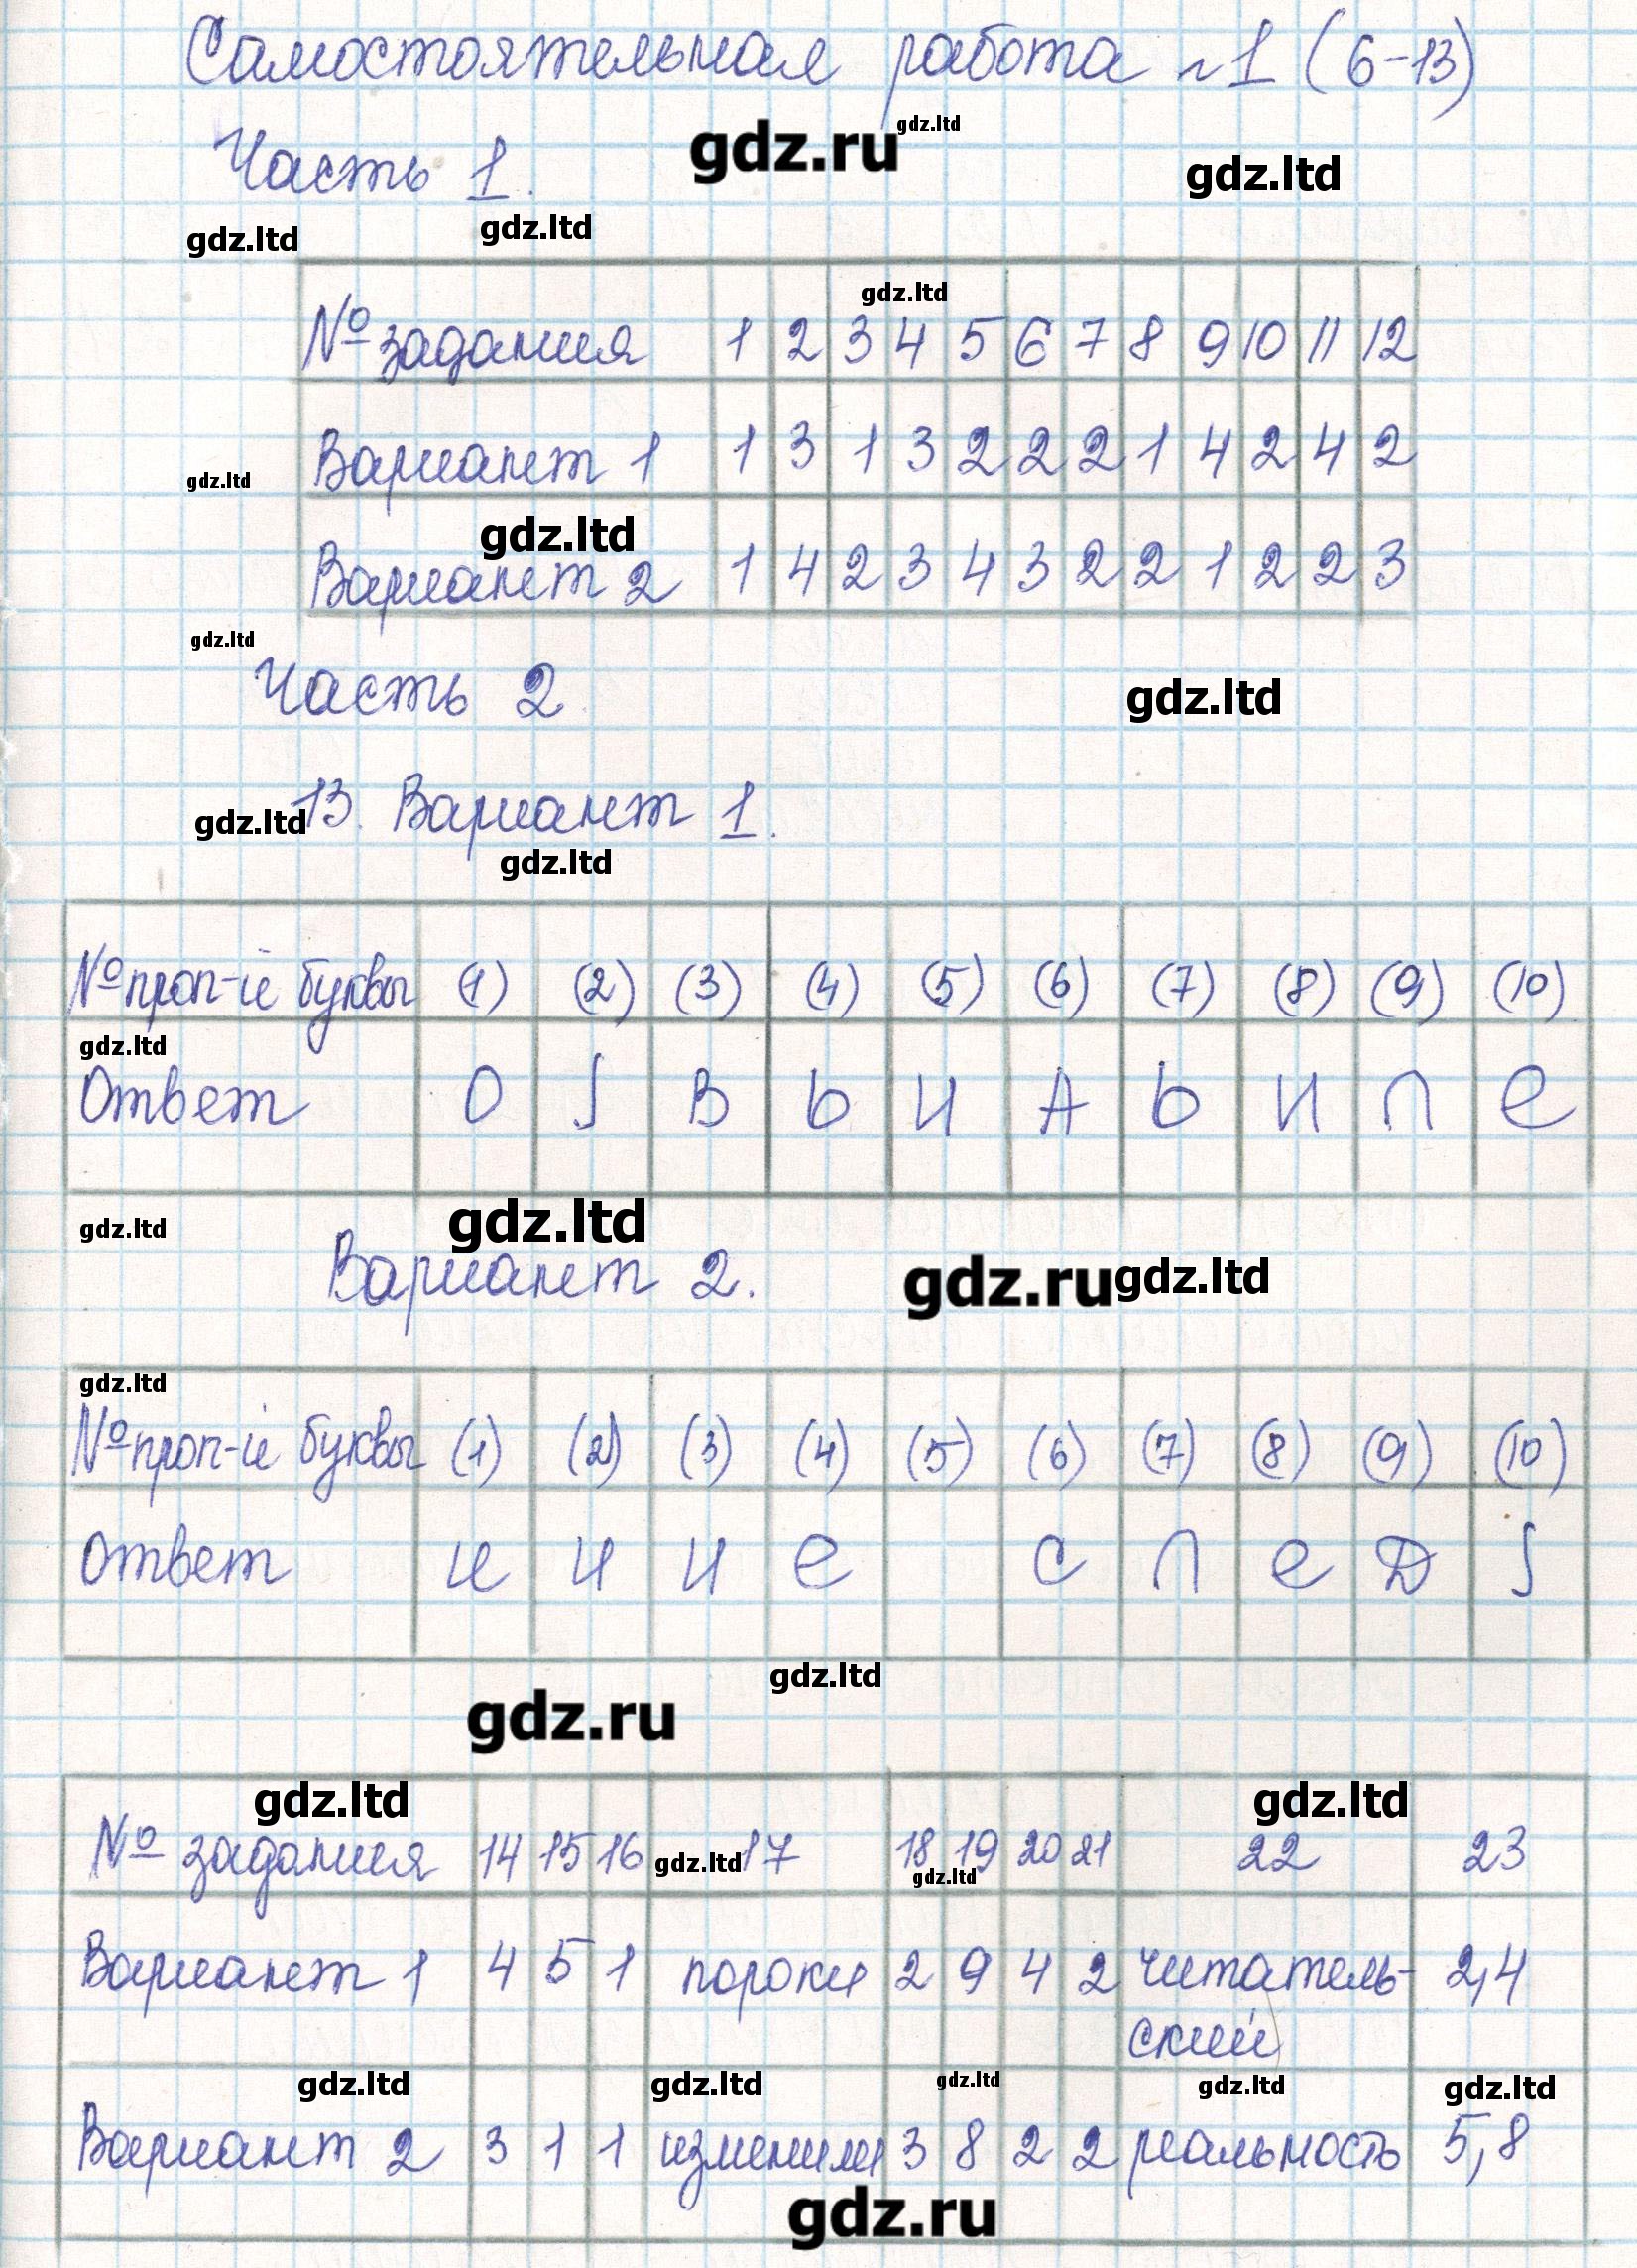 Самостоятельная работа №1 (6-13)
gdz.ltd
Часть 1. gdz.ru gdz.ltd
gdz.ltd gdz.ltd
gdz.ltd
№ задания 1 2 3 4 5 6 7 8 9 10 11 12
Вариант 1 1 3 1 3 2 2 2 1 4 2 4 2
gdz.ltd
gdz.ltd
Вариант 2 1 4 2 3 4 3 2 2 1 2 2 3
gdz.ltd
Часть 2 gdz.ltd
gdz.ltd 13. Вариант 1.
gdz.ltd
№ проп-й буквы (1) (2) (3) (4) (5) (6) (7) (8) (9) (10)
gdz.ltd
Ответ О ∫ В Ь И А Ь И П Е
gdz.ltd gdz.ltd
Вариант 2. gdz.ru gdz.ltd
gdz.ltd
№ проп-й буквы (1) (2) (3) (4) (5) (6) (7) (8) (9) (10)
Ответ И И И Е С П Е Д ∫
gdz.ltd
gdz.ru
gdz.ltd gdz.ltd
№ задания 14 15 16 gdz.ltd 17 18 19 20 21 22 23
gdz.ltd
Вариант 1 4 5 1 пороки 2 9 4 2 читатель- 2,4
ский
gdz.ltd gdz.ltd gdz.ltd gdz.ltd gdz.ltd
Вариант 2 3 1 1 изменили 3 8 2 2 реальность 5,8
gdz.ru